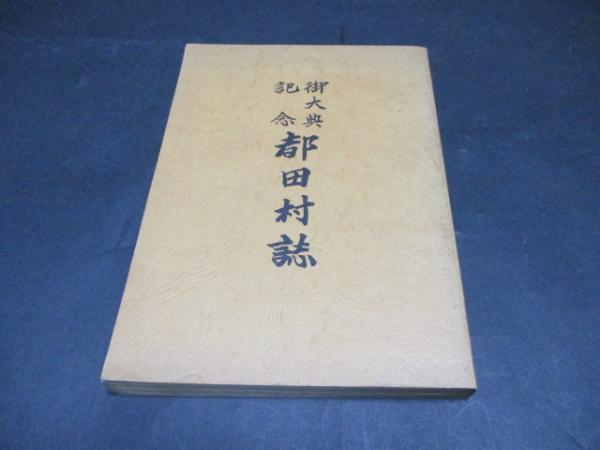 御大典
記念
都田村誌